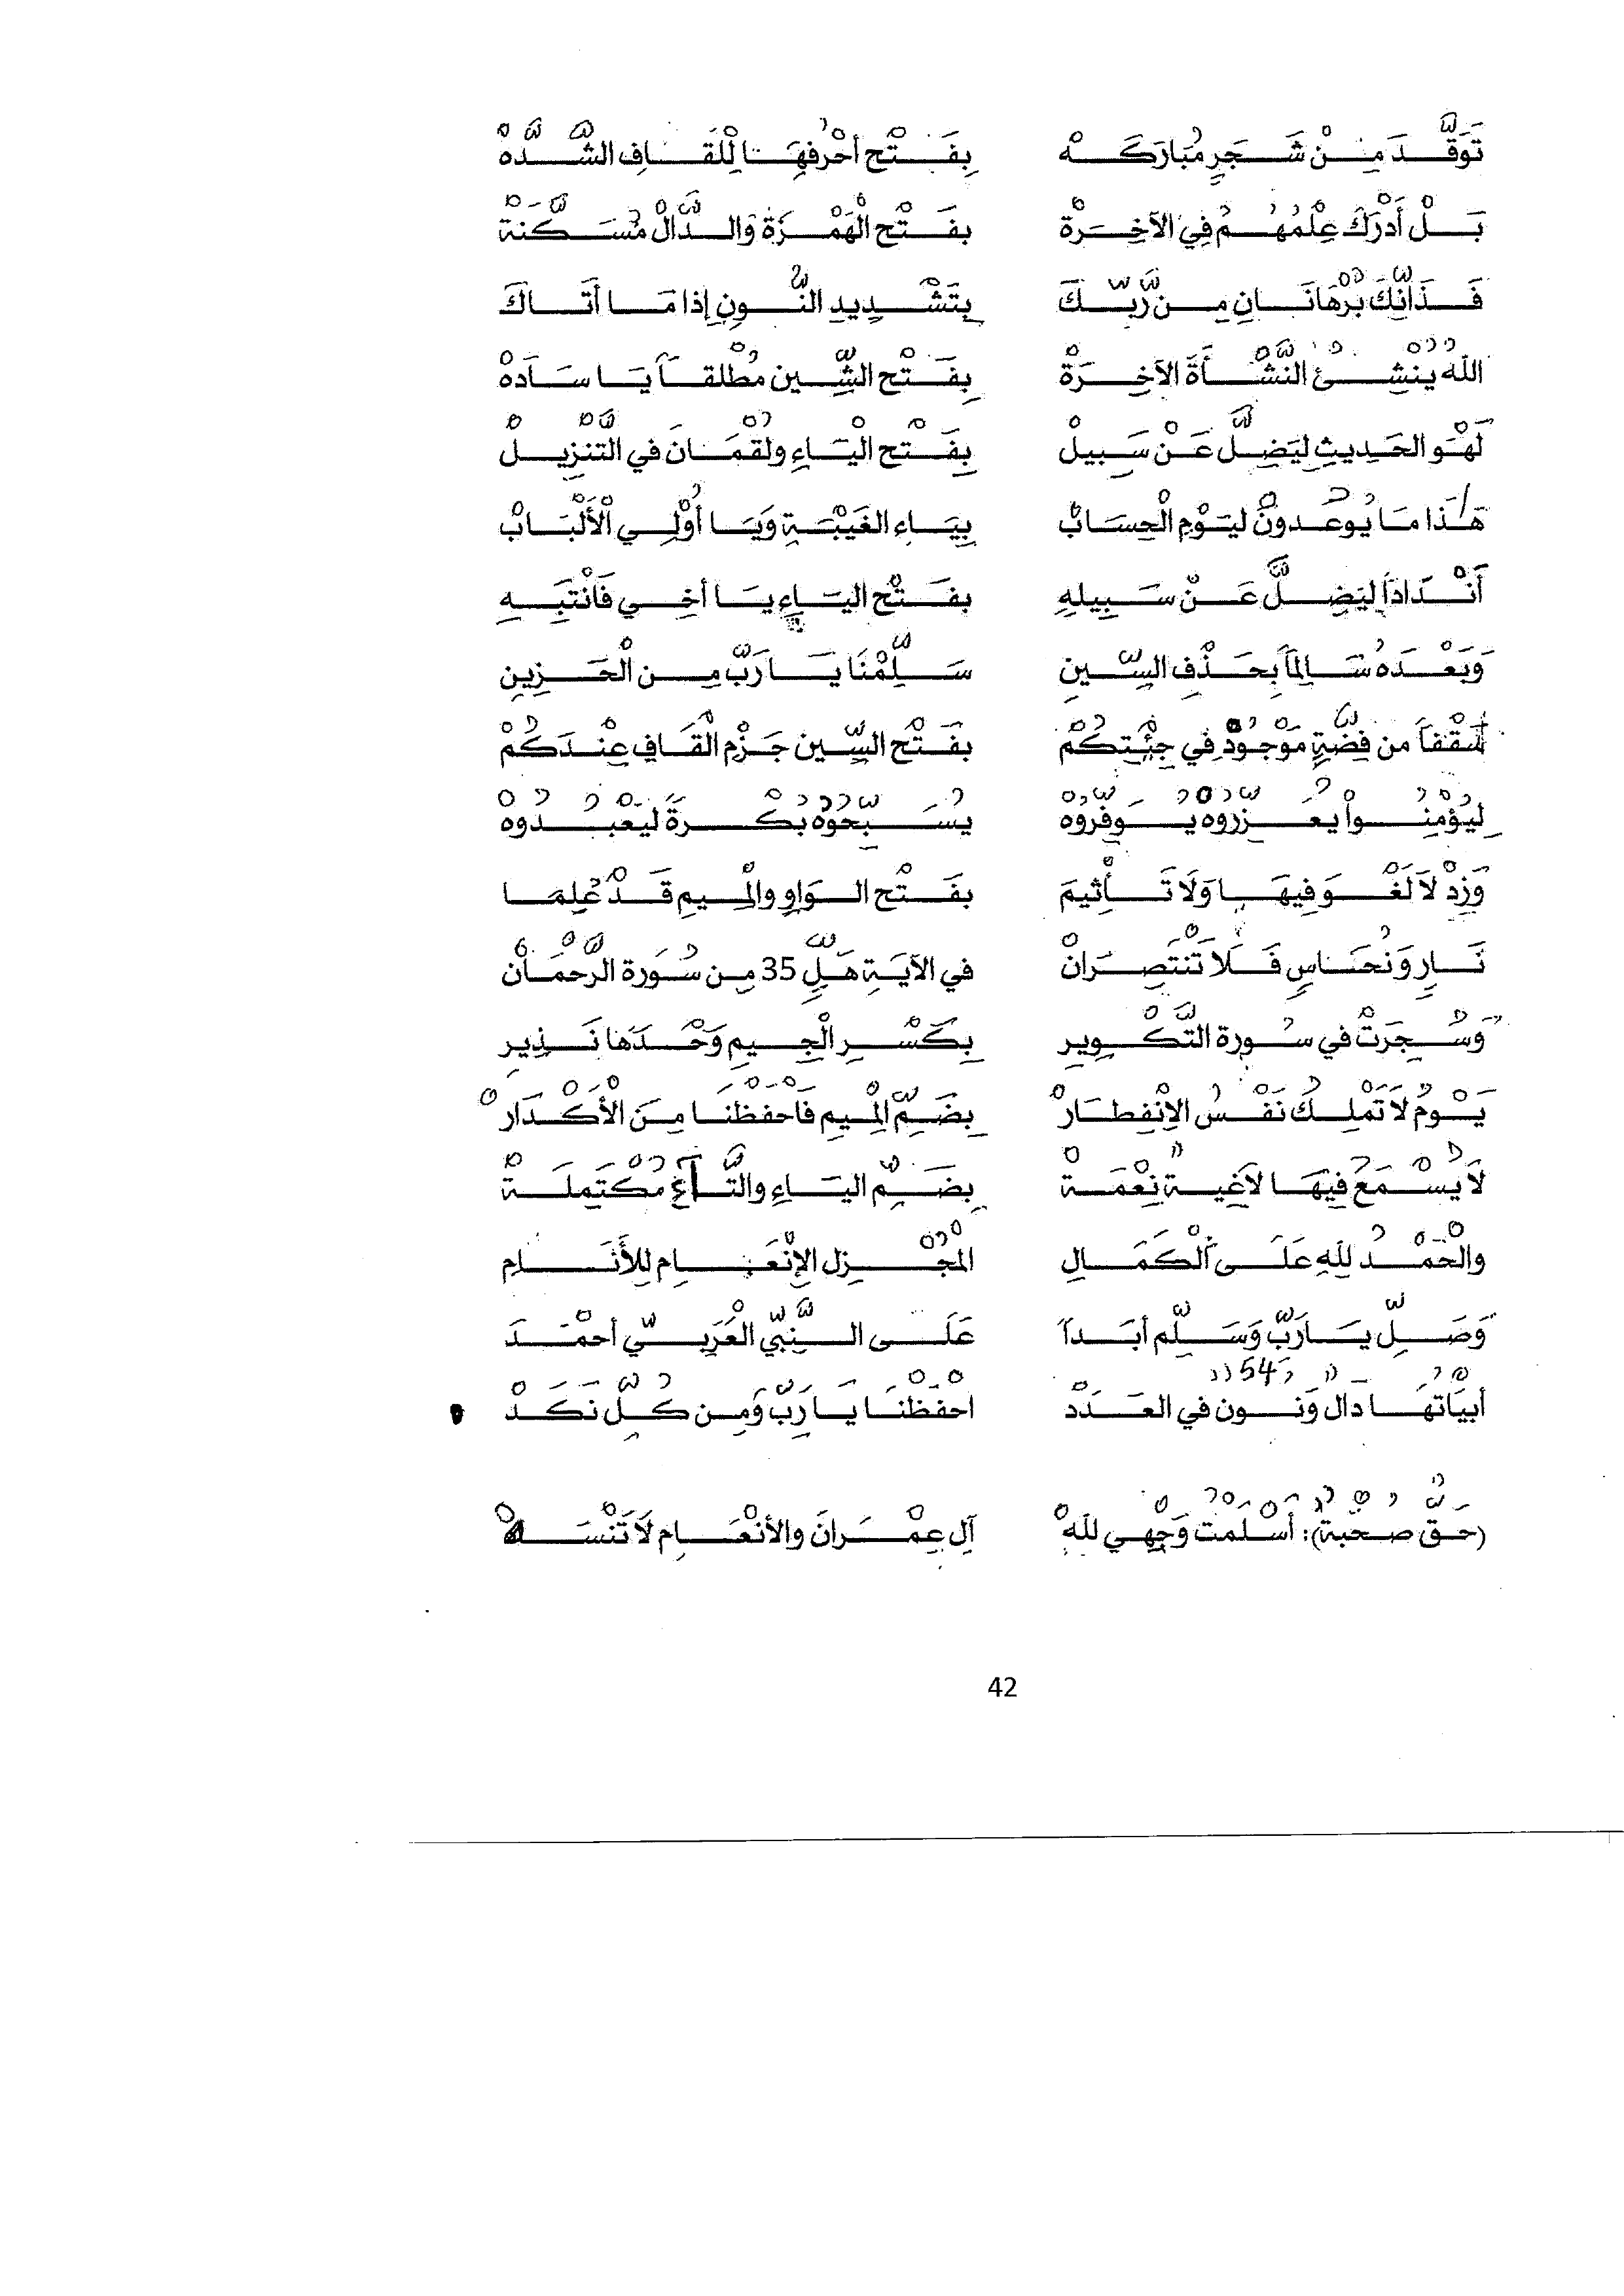 تَوَقَّدَ مِنْ شَجَرٍ مُبَارَكَهْ بِفَتْحِ أَحْرُفِهَا لِلْقَافِ الشَّدَّهْ
بَلْ أَدْرَكَ عِلْمُهُمُ فِي الآخِرَةْ بِفَتْحِ الْهَمْزَةْ وَالدَّالْ مُسَكَّنَةْ
فَذَانِّكَ بُرْهَانَانِ مِن رَّبِّكَ بِتَشْدِيدِ النُّونِ إِذا مَا أَتَاكَ
اللهُ يُنْشِئُ النَّشْأَةَ الآخِرَةْ بِفَتْحِ الشِّينِ مُطْلَقاً يَا سَادَهْ
لَهْوَ الحَدِيثِ لِيَضِلَّ عَنْ سَبِيلْ بِفَتْحِ الْيَاءِ وَلُقْمَانَ في التَّنْزِيلْ
هَذَا مَا يُوعَدُونْ لِيَوْمِ الْحِسَابْ بِيَاءِ الغَيْبَةِ وَيَا أُوْلِي الْأَلْبَابْ
أَنْدَاداً لِيَضِلَّ عَنْ سَبِيلِهِ بِفَتْحِ اليَاءِ يَا أَخِي فَانْتَبِهِ
وَبَعْدَهُ سَالِماً بِحَذْفِ السِّينِ سَلِّمْنَا يَا رَبِّ مِنَ الْحَزِينِ
سَقْفاً مِن فِضَّةٍ مَوْجُودْ فِي جِئْتُكُمْ بِفَتْحِ السِّينِ جَزْمِ الْقَافِ عِنْدَكُمْ
لِيُؤْمِنُوا يُعَزِّرُوهْ يُوَقِّرُوهْ يُسَبِّحُوهْ بُكْرَةً لِيَعْبُدُوهْ
وَزِدْ لاَ لَغْوَ فِيهَا وَلَا تَأْثِيمَ بِفَتْحِ الوَاوِ وَالْمِيمِ قَدْ عُلِمَا
نَارٍ وَنُحَاسٍ فَلاَ تَنْتَصِرَانْ في الآيَةِ هَلٍ 35 مِن سُورَةِ الرَّحْمَانْ
وَسُجِرَتْ في سُورَةِ التَّكْوِيرِ بِكَسْرِ الْجِيمِ وَحْدَهَا نَذِيرِ
يَوْمُ لاَ تَمْلِكُ نَفْسُ الاِنْفِطَارْ بِضَمِّ الْمِيمِ فَاحْفَظْنَا مِنَ الأَكْدَارْ
لاَ يُسْمَعُ فِيهَا لاَغِيةٌ نِعْمَةْ بِضَمِّ اليَاءِ وَالتَّآ غُ مُكْتَمِلَةْ
وَالْحَمْدُ لِلهِ عَلَى الْكَمَالِ الْمُجْزِلِ الإِنْعَامِ لِلأَنَامِ
وَصَلِّ يَا رَبِّ وَسَلِّمْ أَبَداً عَلَى النَّبِيّ الْعَرَبِيّ أَحْمَدَ
أَبْيَاتُهَا دَالٌ وَنُونٌ في العَدَدْ ((54)) احْفَظْنَا يَا رَبِّ وَمِن كُلِّ نَكَدْ
(حَقُّ صُحْبَةٌ): أَسْلَمْتُ وَجْهِي لِلهْ آلِ عِمْرَانَ والأَنْعَامِ لاَ تَنْسَهْ
42